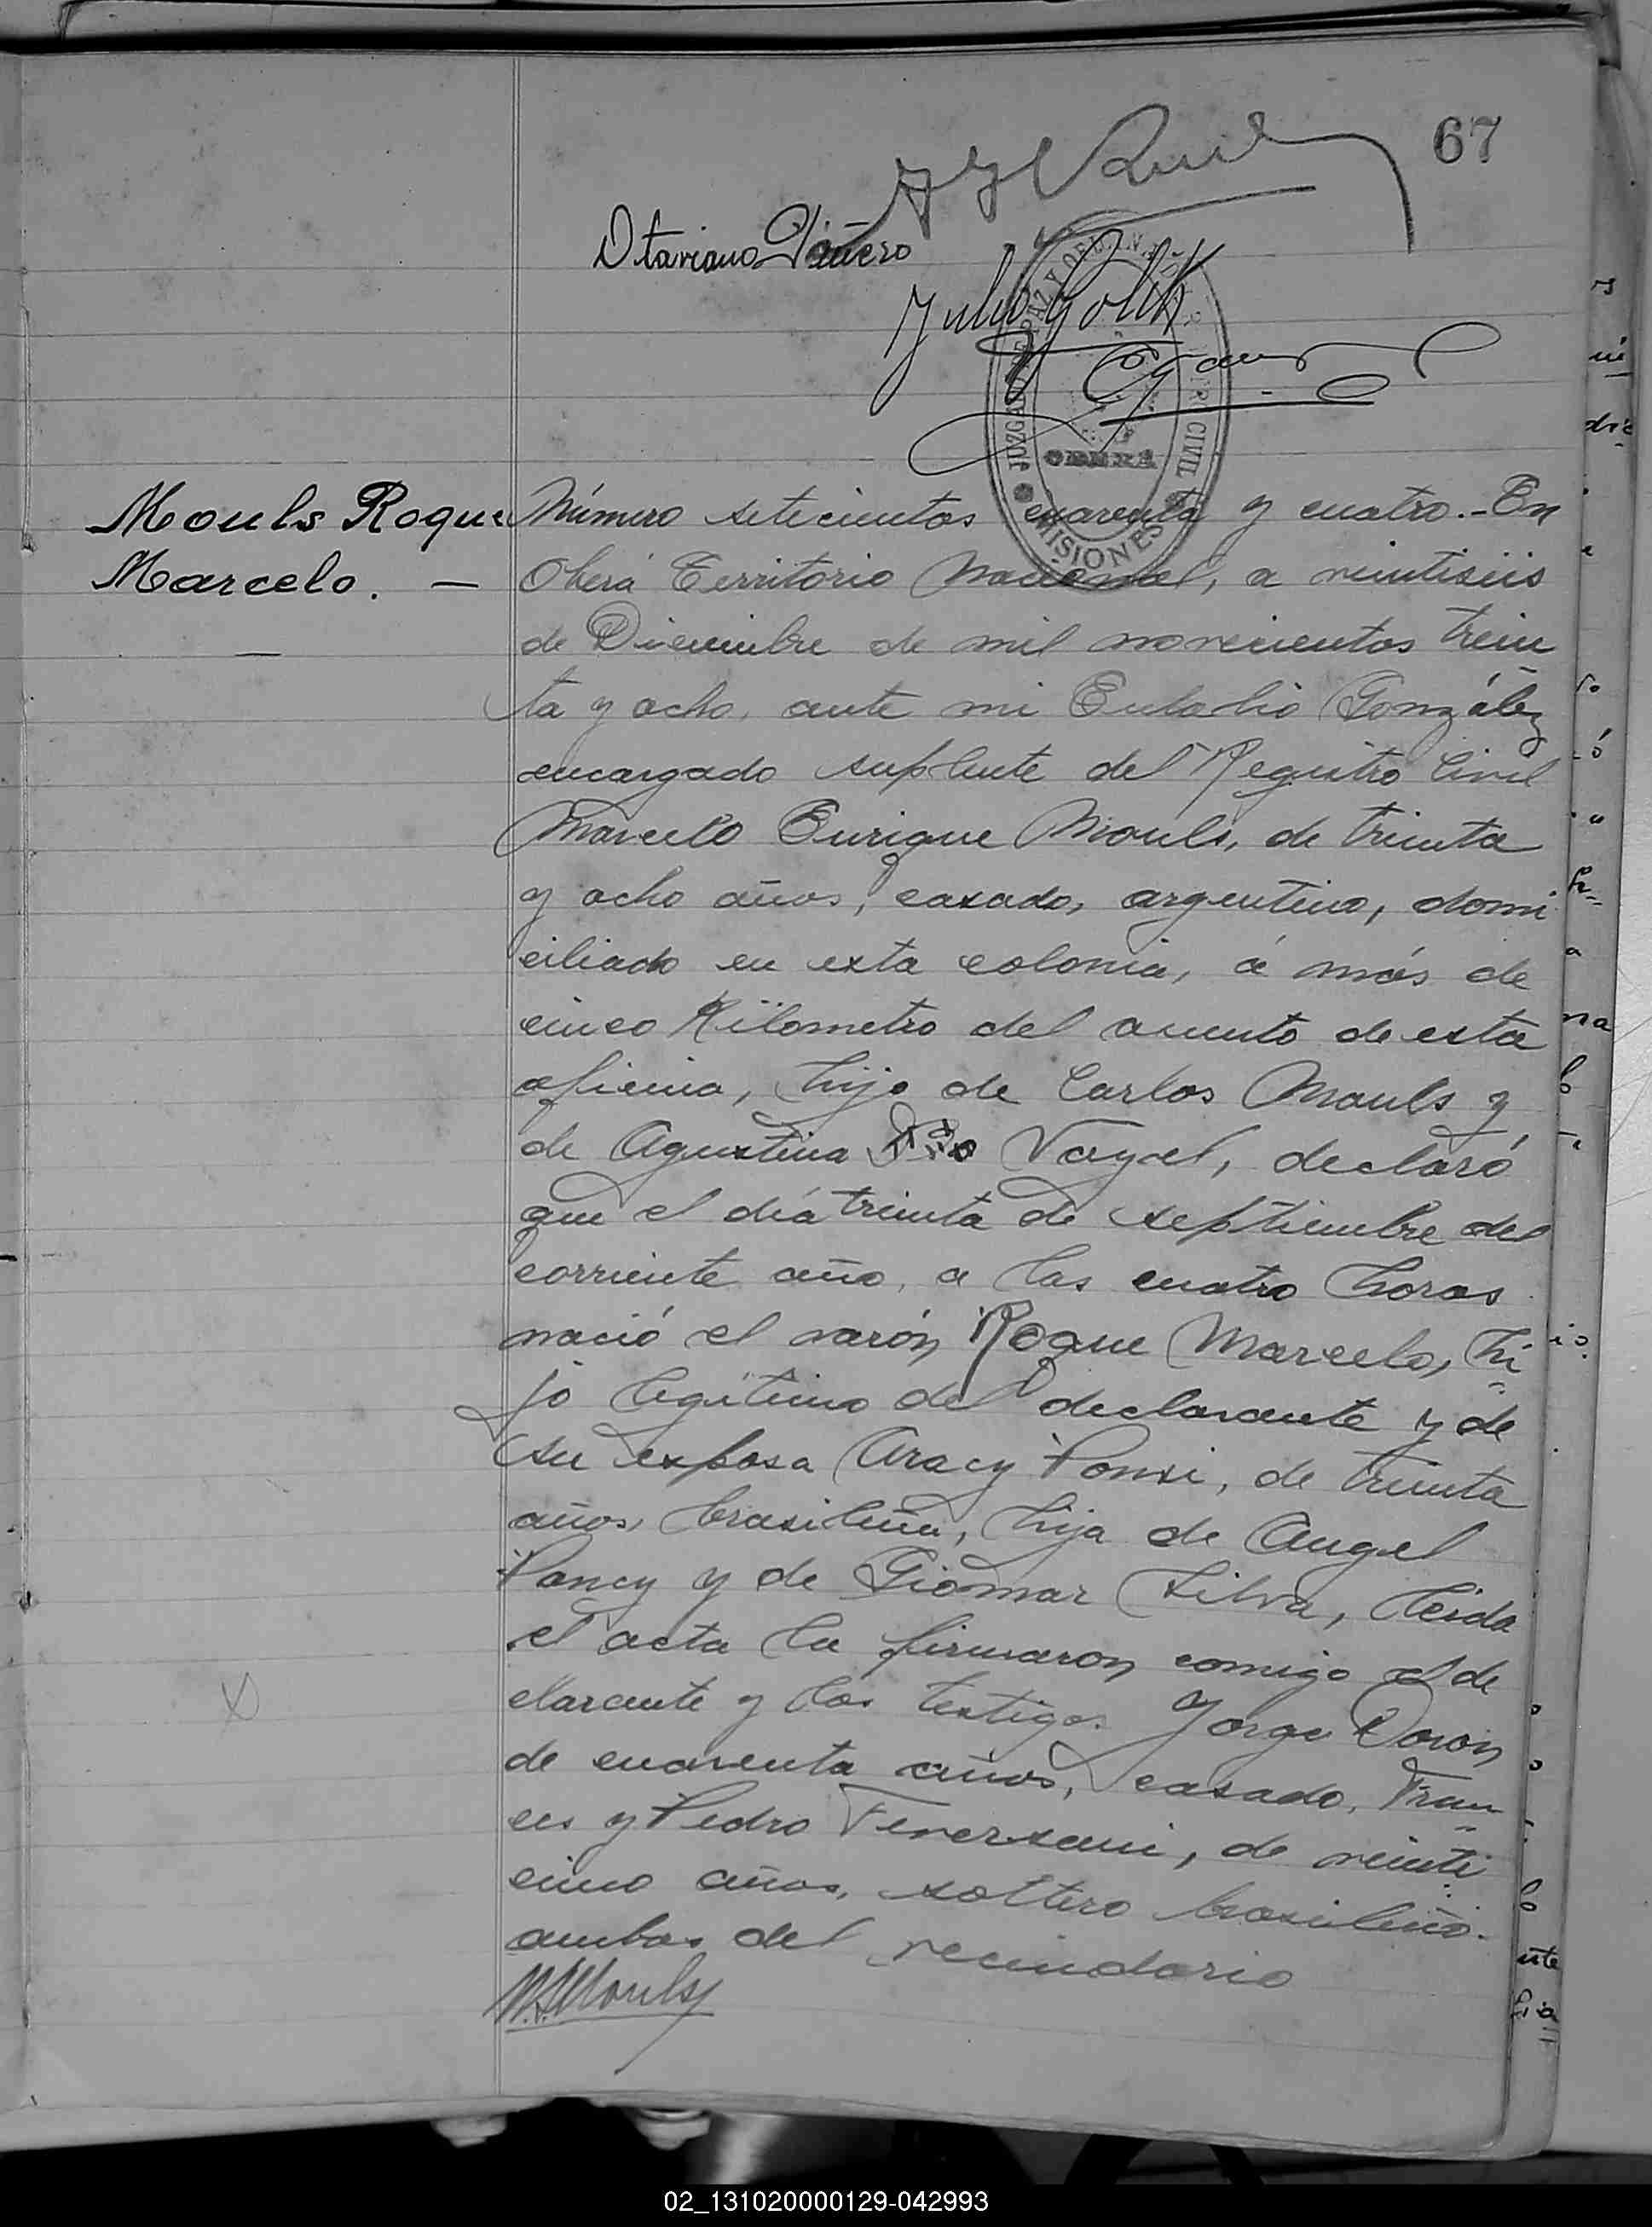 67
Otaviano Piñero
Julio Golik
JUZGADO DE PAZ Y OFICINA DEL REGISTRO CIVIL
OBERÁ
MISIONES
Mouls Roque
Marcelo. —
Número setecientos cuarenta y cuatro.- En
Oberá Territorio Nacional, a veintiseis
de Diciembre de mil novecientos trein
ta y ocho, ante mi Eulalio González
encargado suplente del Registro Civil
Marcelo Enrique Mouls, de treinta
y ocho años, casado, argentino, domi
ciliado en esta colonia, á más de
cinco Kilometro del asiento de esta
oficina, hijo de Carlos Mouls y
de Agustina Vayel, declaró
que el día treinta de septiembre del
corriente año, a las cuatro horas
nació el varón Roque Marcelo, hi
jo legítimo del declarante y de
su esposa Aracy Ponsi, de treinta
años, brasileña, hija de Angel
Poncy y de Giomar Silva, leida
el acta la firmaron comigo el de
clarante y los testigos Jorge Doron
de cuarenta años, casado, Fran
ces y Pedro Feversani, de veinti
cinco años, soltero brasileño.
ambos del vecindario
M. Mouls
02_131020000129-042993